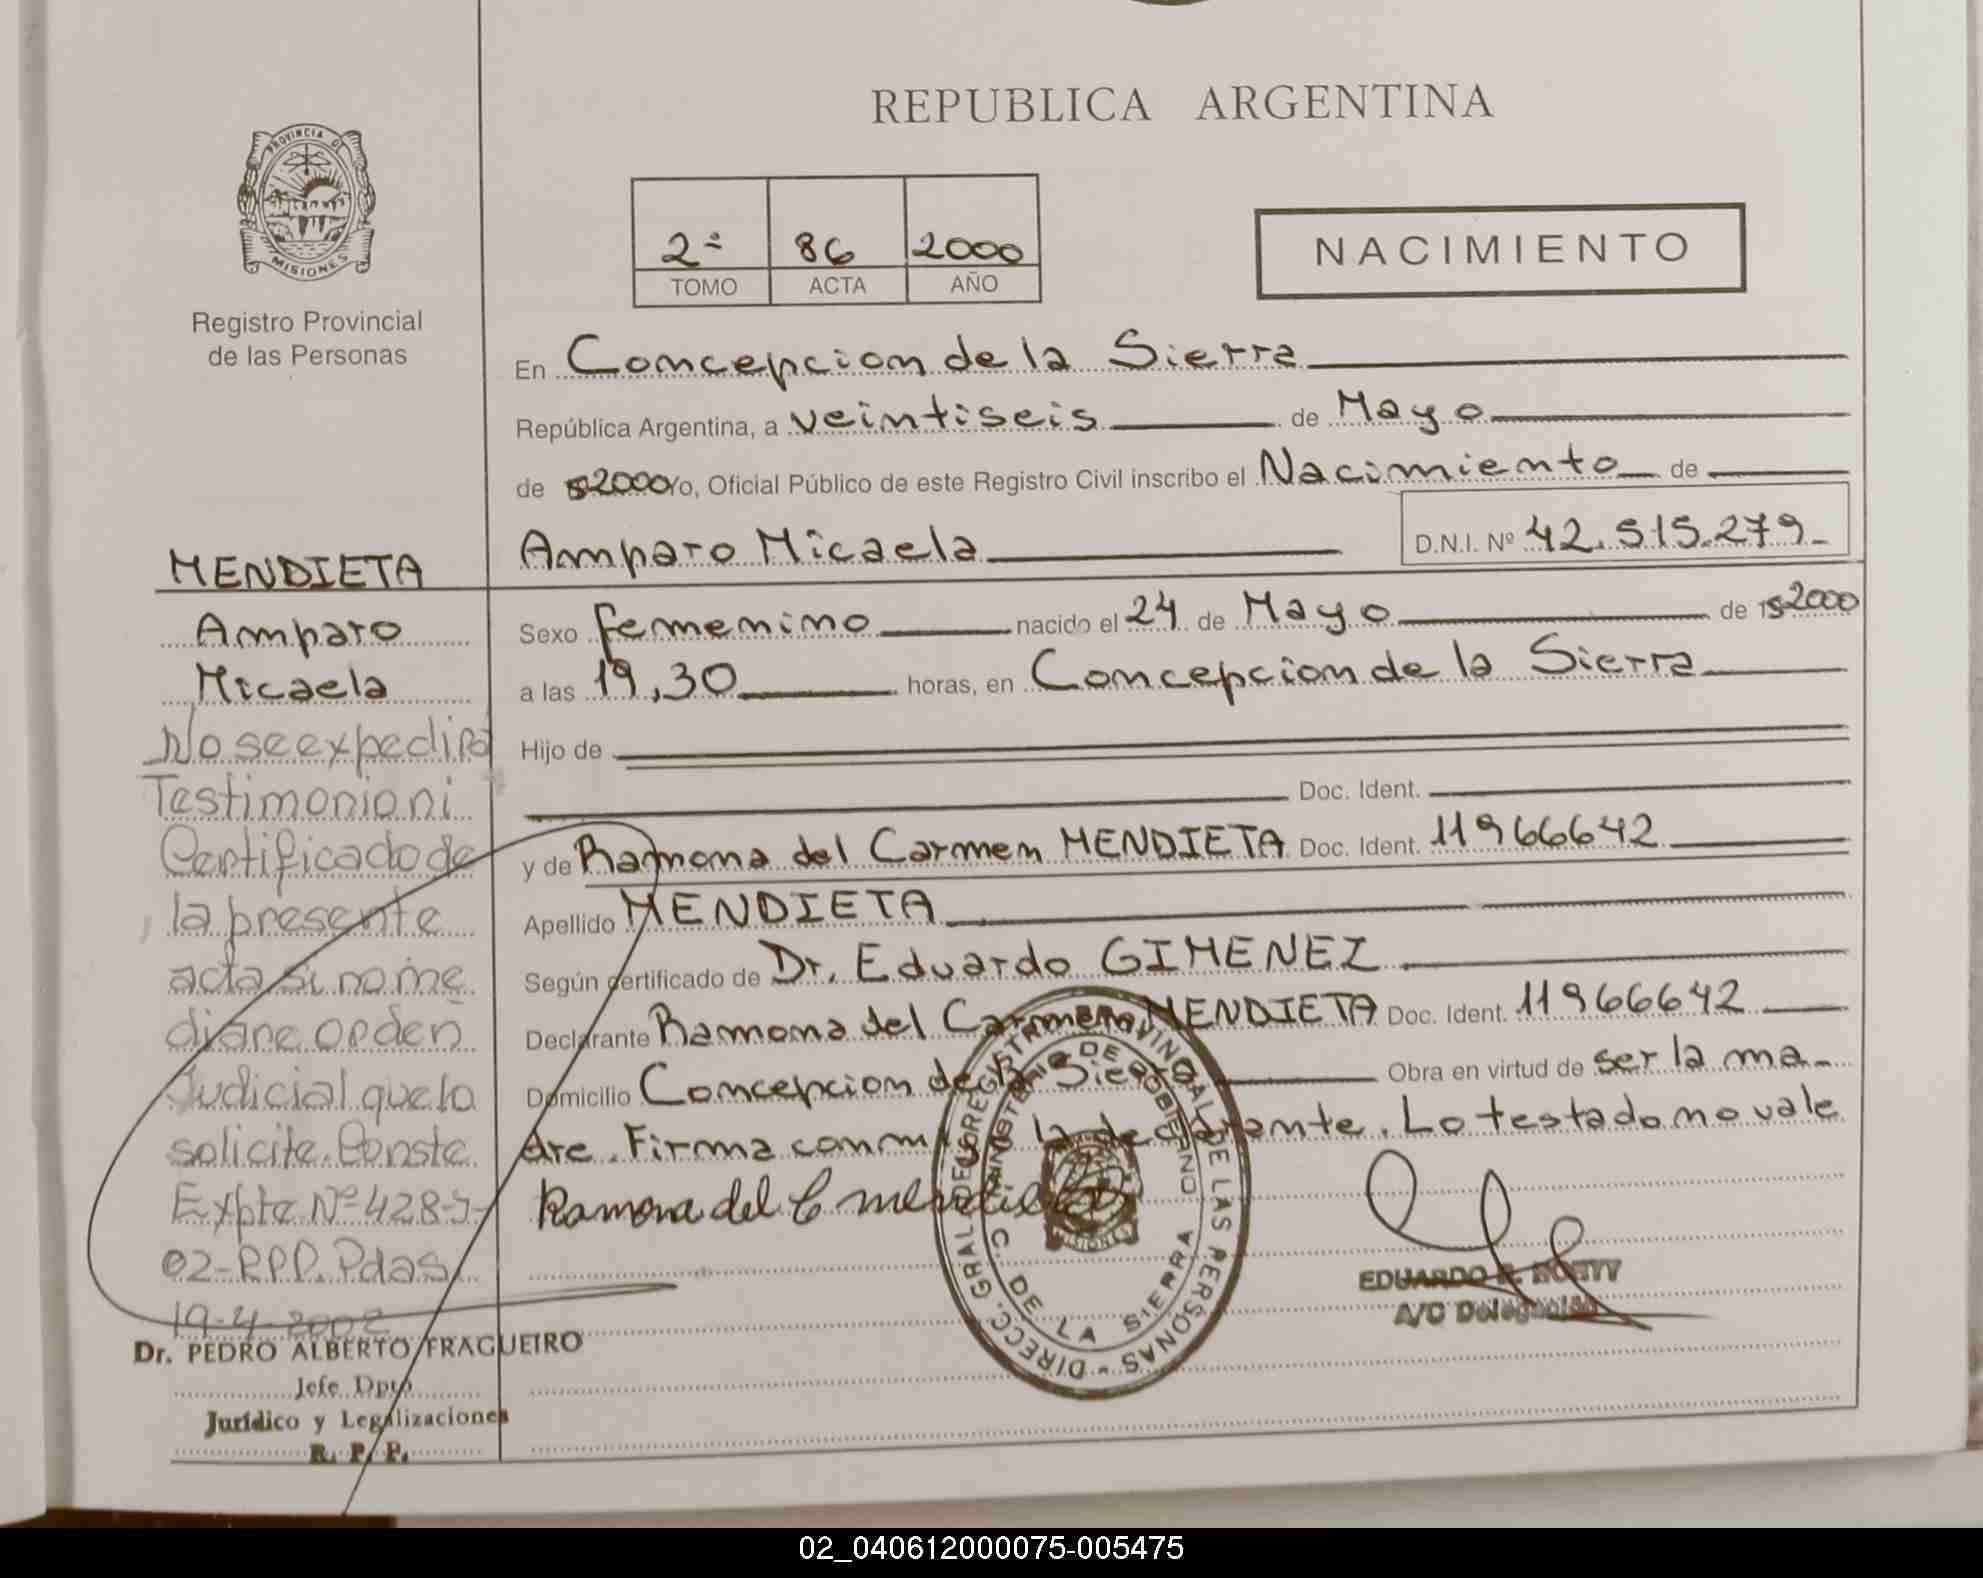 REPUBLICA ARGENTINA
PROVINCIA DE
MISIONES
Registro Provincial
de las Personas
2ª 86 2000
TOMO ACTA AÑO
NACIMIENTO
En Concepcion de la Sierra
República Argentina, a veintiseis de Mayo
de 2000 yo, Oficial Público de este Registro Civil inscribo el Nacimiento de
Amparo Micaela D.N.I. Nº 42.515.279
Sexo femenino nacido el 24 de Mayo de 2000
a las 19,30 horas, en Concepcion de la Sierra
Hijo de
Doc. Ident.
y de Ramona del Carmen MENDIETA Doc. Ident. 11966642
Apellido MENDIETA
Según certificado de Dr. Eduardo GIMENEZ
Declarante Ramona del Carmen MENDIETA Doc. Ident. 11966642
Domicilio Concepcion de la Sierra Obra en virtud de ser la ma-
dre. Firma conmigo la declarante. Lo testado no vale
Ramona del C mendieta
DIRECC. GRAL. DEL REGISTRO PROVINCIAL DE LAS PERSONAS
MINISTERIO DE GOBIERNO
C. DE LA SIERRA
MISIONES
EDUARDO
A/C Delegación
MENDIETA
Amparo
Micaela
No se expedirá
Testimonio ni
Certificado de
la presente
acta si no me
diare orden
Judicial que lo
solicite. Conste
Expte Nº 428-J-
02-RPP. Pdas
19-4-2002
Dr. PEDRO ALBERTO FRAGUEIRO
Jefe Dpto
Jurídico y Legalizaciones
R. P. P.
02_040612000075-005475